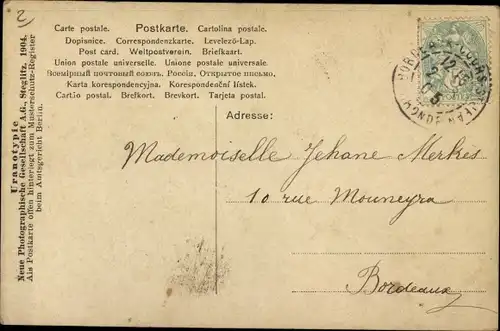 2
Carte postale. Postkarte. Cartolina postale.
Dopisnice. Correspondenzkarte. Levelező-Lap.
Post card. Weltpostverein. Briefkaart.
Union postale universelle. Unione postale universale.
Всемірный почтовый союзъ. Россія. Открытое письмо.
Karta korespondencyjna. Korespondenční lístek.
Cartão postal. Brefkort. Brevkort. Tarjeta postal.
Uranotypie
Neue Photographische Gesellschaft A.G., Steglitz, 1904.
Als Postkarte offen hinterlegt zum Musterschutz-Register
beim Amtsgericht Berlin.
Adresse:
Mademoiselle Jehane Merkis
10 rue Mouneyra
Bordeaux